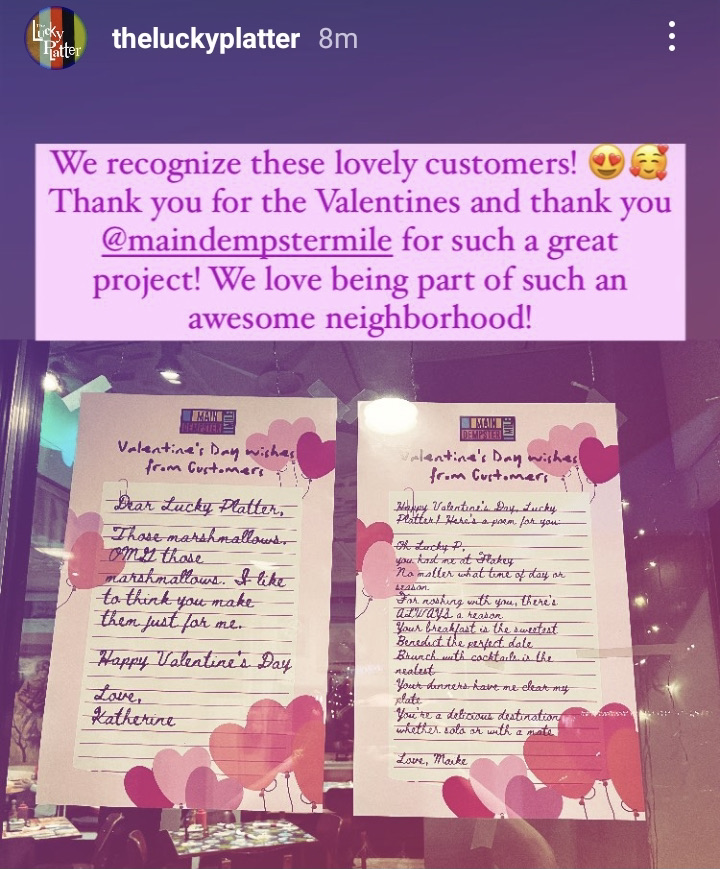 The Lucky Platter
theluckyplatter 8m
We recognize these lovely customers! 😍🥰
Thank you for the Valentines and thank you
@maindempstermile for such a great
project! We love being part of such an
awesome neighborhood!
MAIN
DEMPSTER
MILE
Valentine's Day wishes
from Customers
Dear Lucky Platter,
Those marshmallows.
OMG those
marshmallows. I like
to think you make
them just for me.
Happy Valentine's Day
Love,
Katherine
MAIN
DEMPSTER
MILE
Valentine's Day wishes
from Customers
Happy Valentine's Day, Lucky
Platter! Here's a poem for you:
Oh Lucky P,
you had me at Flakey
No matter what time of day or
season
For noshing with you, there's
ALWAYS a reason
Your breakfast is the sweetest
Benedict the perfect date
Brunch with cocktails is the
neatest
Your dinners have me clear my
plate
You're a delicious destination
whether solo or with a mate
Love, Maike